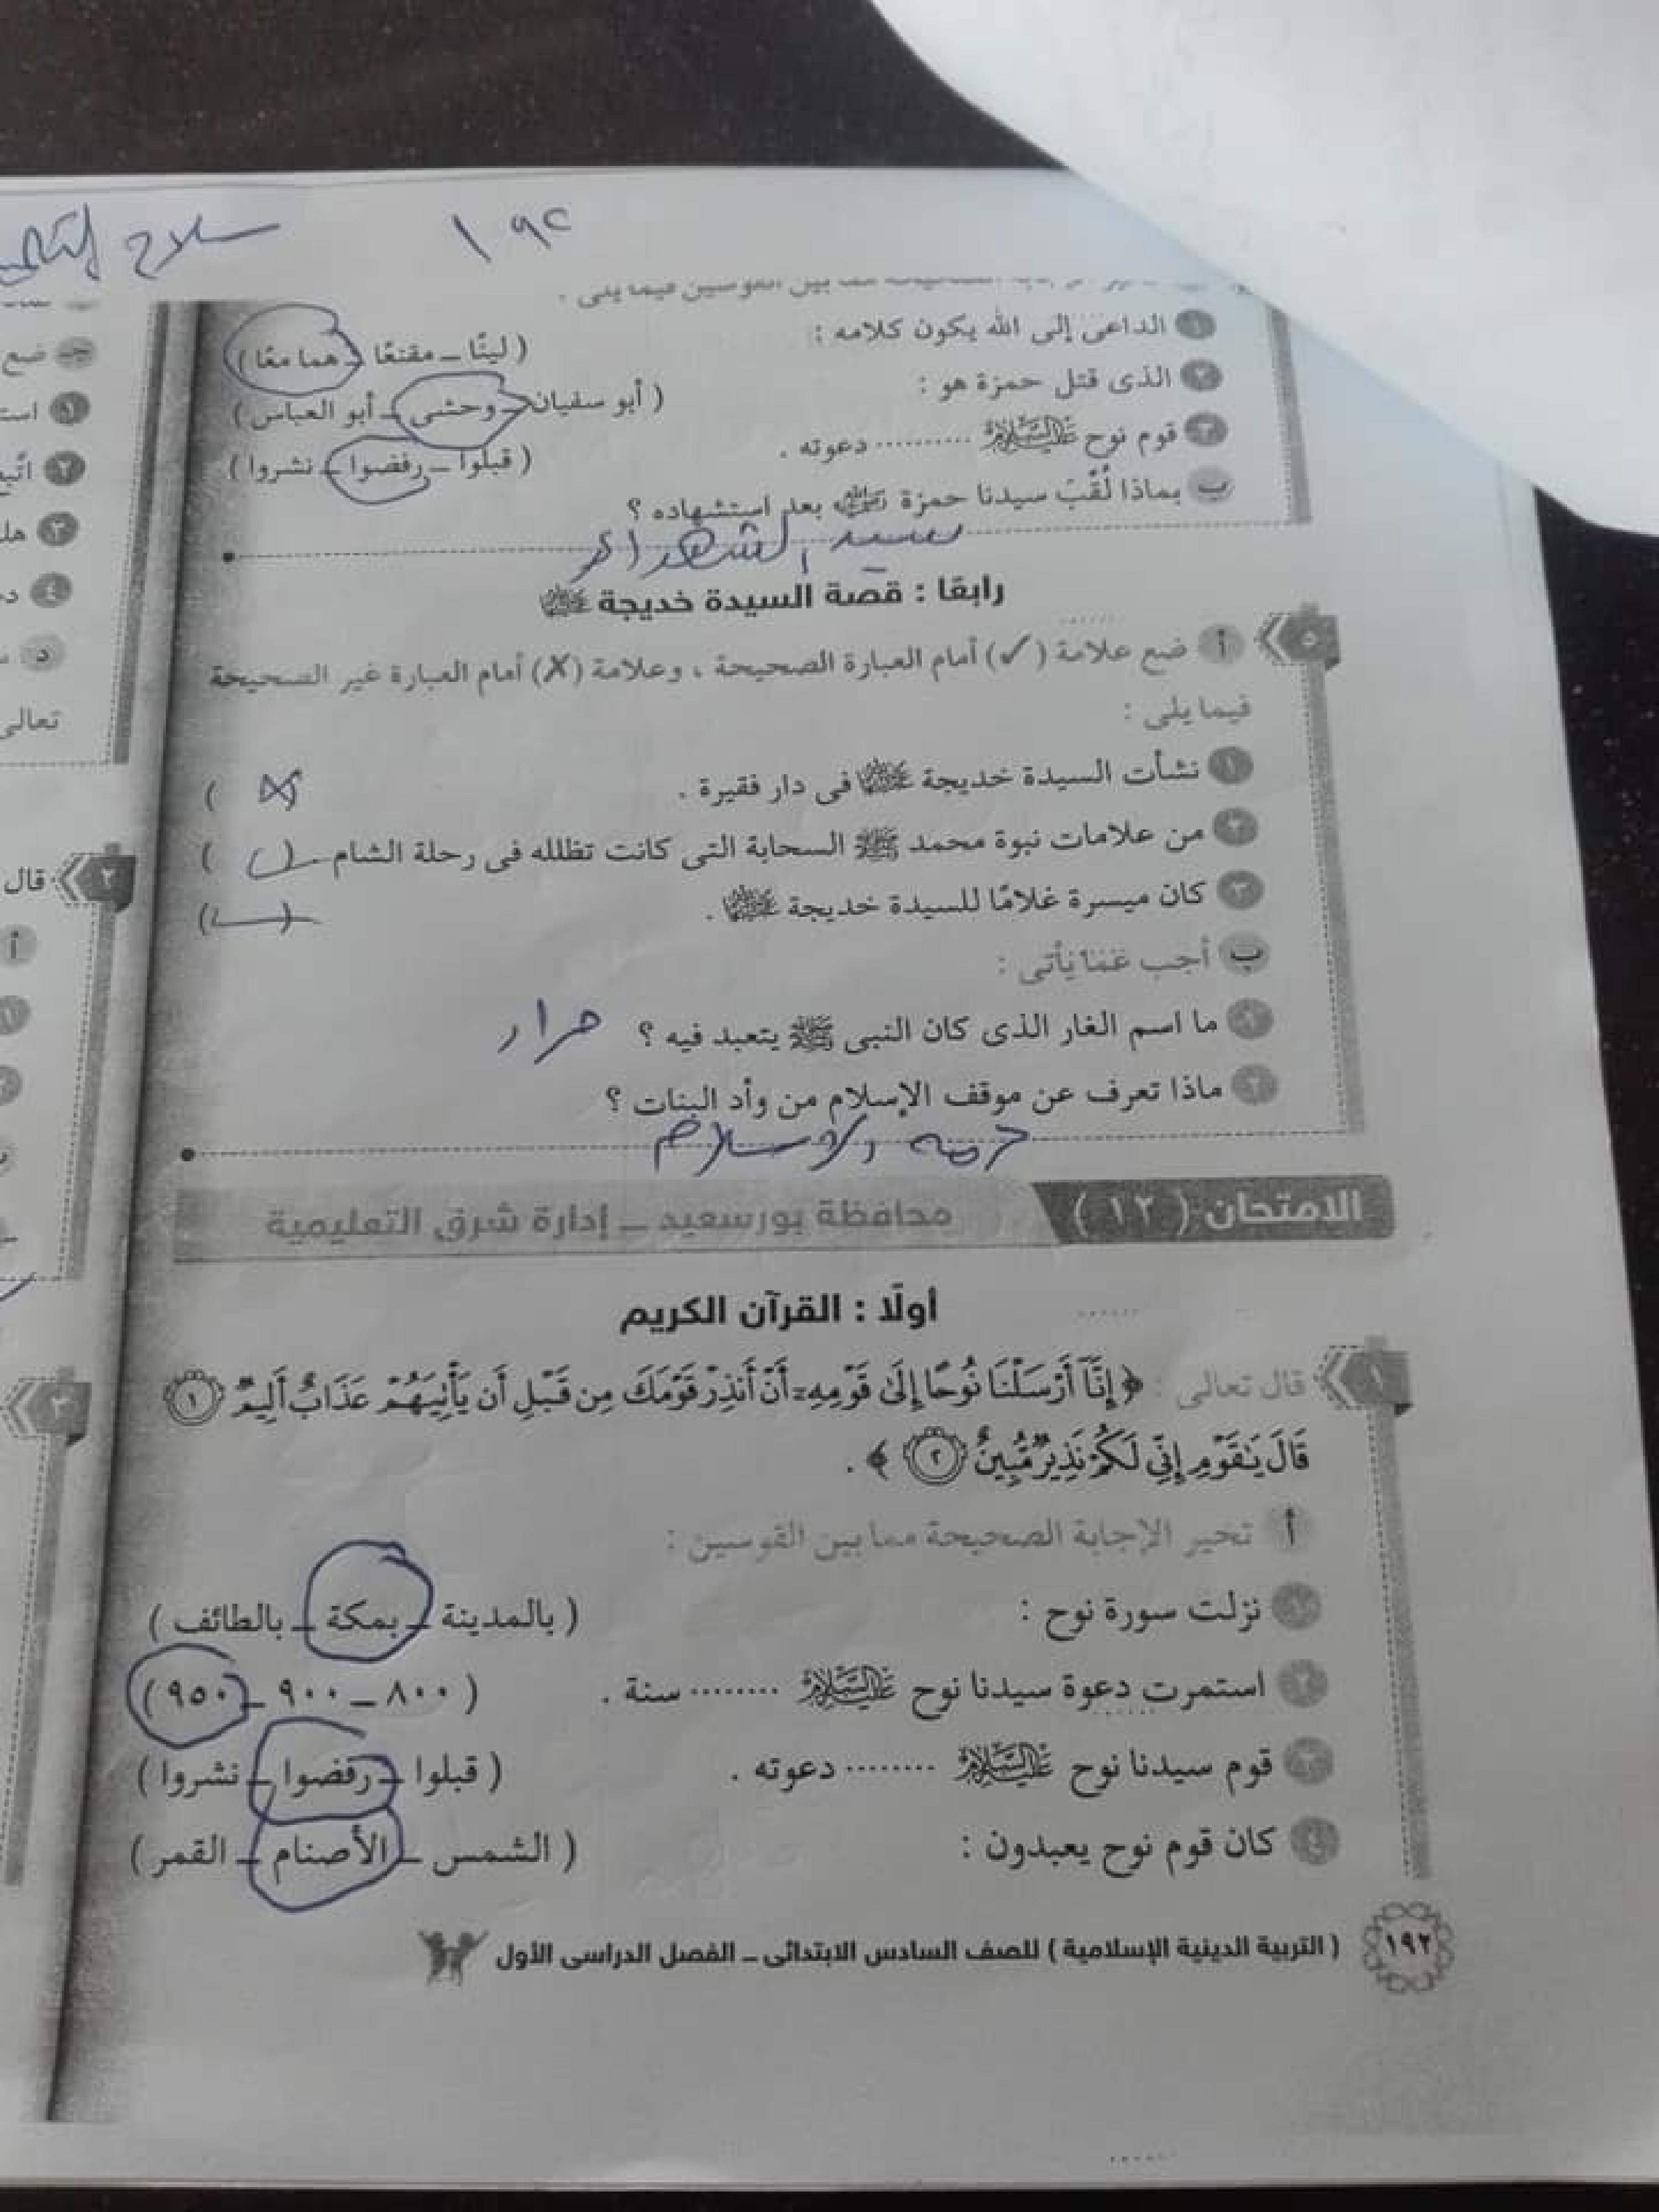 سلاح التلميذ ١٩٢
مما بين القوسين فيما يلى .
١ الداعى إلى الله يكون كلامه : ( لينًا ـ مقنعًا ـ هما معًا )
٢ الذى قتل حمزة هو : ( أبو سفيان ـ وحشى ـ أبو العباس )
٣ قوم نوح عليه السلام .......... دعوته . ( قبلوا ـ رفضوا ـ نشروا )
ب بماذا لُقِّبَ سيدنا حمزة رضي الله عنه بعد استشهاده ؟
سيد الشهداء
رابعًا : قصة السيدة خديجة رضي الله عنها
٥ أ ضع علامة (✓) أمام العبارة الصحيحة ، وعلامة (✗) أمام العبارة غير الصحيحة
فيما يلى :
١ نشأت السيدة خديجة رضي الله عنها فى دار فقيرة . ( ✗ )
٢ من علامات نبوة محمد ﷺ السحابة التى كانت تظلله فى رحلة الشام ( ✓ )
٣ كان ميسرة غلامًا للسيدة خديجة رضي الله عنها . ( ✓ )
ب أجب عما يأتى :
١ ما اسم الغار الذى كان النبى ﷺ يتعبد فيه ؟ حراء
٢ ماذا تعرف عن موقف الإسلام من وأد البنات ؟
حرمه الاسلام
الامتحان ( ١٢ ) محافظة بورسعيد ـ إدارة شرق التعليمية
أولًا : القرآن الكريم
١ قال تعالى : ﴿ إِنَّآ أَرْسَلْنَا نُوحًا إِلَىٰ قَوْمِهِۦٓ أَنْ أَنذِرْ قَوْمَكَ مِن قَبْلِ أَن يَأْتِيَهُمْ عَذَابٌ أَلِيمٌ (١)
قَالَ يَٰقَوْمِ إِنِّى لَكُمْ نَذِيرٌ مُّبِينٌ (٢) ﴾ .
أ تخير الإجابة الصحيحة مما بين القوسين :
١ نزلت سورة نوح : ( بالمدينة ـ بمكة ـ بالطائف )
٢ استمرت دعوة سيدنا نوح عليه السلام ........ سنة . ( ٨٠٠ ـ ٩٠٠ ـ ٩٥٠ )
٣ قوم سيدنا نوح عليه السلام ........ دعوته . ( قبلوا ـ رفضوا ـ نشروا )
٤ كان قوم نوح يعبدون : ( الشمس ـ الأصنام ـ القمر )
١٩٢ ( التربية الدينية الإسلامية ) للصف السادس الابتدائى ـ الفصل الدراسى الأول
جـ ضع
١
٢
٣ هل
٤
د
تعالى
٢ قال
أ
١
٣